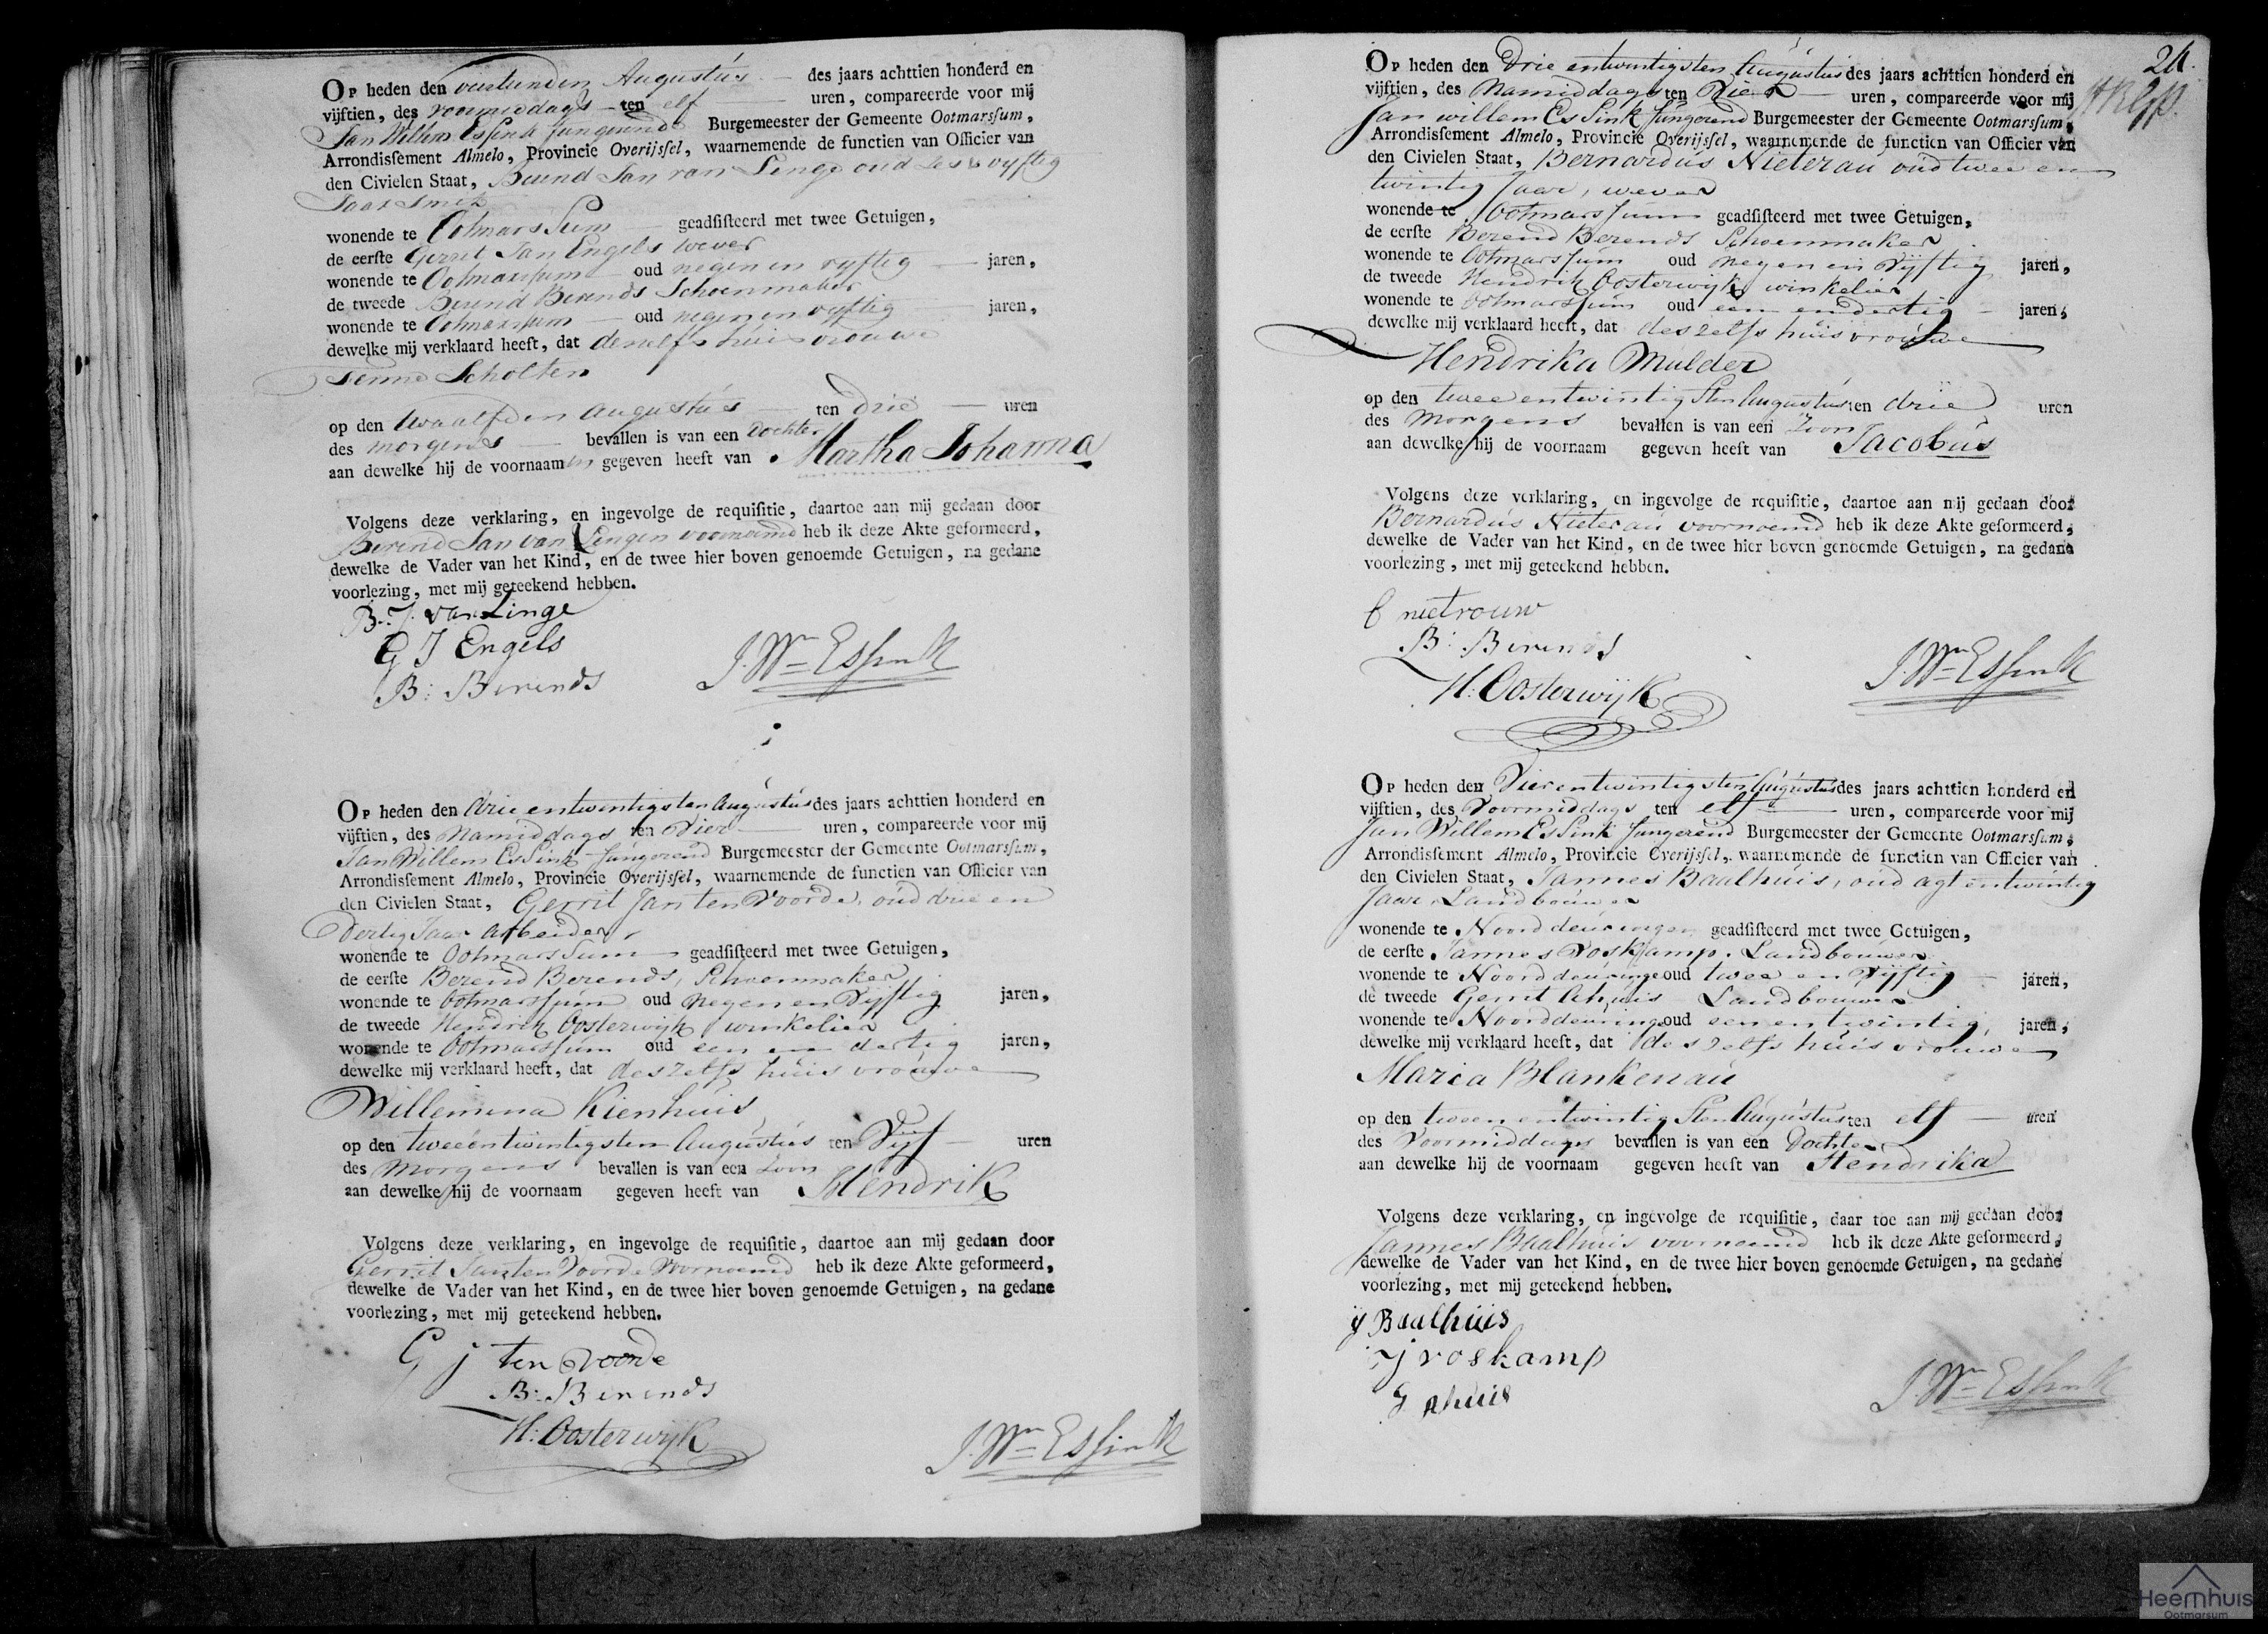 Op heden den veertienden Augustus des jaars achttien honderd en
vijftien, des voormiddags ten elf uren, compareerde voor mij
Jan Willem Essink fungerend Burgemeester der Gemeente Ootmarssum,
Arrondissement Almelo, Provincie Overijssel, waarnemende de functien van Officier van
den Civielen Staat, Berend Jan van Lenge oud zes vyftig
Jaar Smit
wonende te Ootmarssum geadsisteerd met twee Getuigen,
de eerste Gerret Jan Engels wever
wonende te Ootmarssum oud negen en vyftig jaren,
de tweede Berend Berends Schoenmaker
wonende te Ootmarssum oud negen en vyftig jaren,
dewelke mij verklaard heeft, dat deszelfs huisvrouwe
Scholten
op den twaalfden Augustus ten drie uren
des morgens bevallen is van een dochter
aan dewelke hij de voornaamen gegeven heeft van Martha Johanna
Volgens deze verklaring, en ingevolge de requisitie, daartoe aan mij gedaan door
Berend Jan van Lengen voornoemd heb ik deze Akte geformeerd,
dewelke de Vader van het Kind, en de twee hier boven genoemde Getuigen, na gedane
voorlezing, met mij geteekend hebben.
B. J. van Linge
G J Engels
B: Berends
J. Wm Essink
Op heden den drie entwintigsten Augustus des jaars achttien honderd en
vijftien, des Namiddags ten Vier uren, compareerde voor mij
Jan Willem Essink fungerend Burgemeester der Gemeente Ootmarssum,
Arrondissement Almelo, Provincie Overijssel, waarnemende de functien van Officier van
den Civielen Staat, Gerrit Jan ten Voorde, oud drie en
dertig Jaar Arbeider,
wonende te Ootmarssum geadsisteerd met twee Getuigen,
de eerste Berend Berends, Schoenmaker
wonende te Ootmarssum oud negen en Vijftig jaren,
de tweede Hendrik Oosterwijk winkelier
wonende te Ootmarssum oud een en dertig jaren,
dewelke mij verklaard heeft, dat deszelfs huisvrouwe
Willemina Kienhuis
op den tweeentwintigsten Augustus ten Vijf uren
des Morgens bevallen is van een Zoon
aan dewelke hij de voornaam gegeven heeft van Hendrik
Volgens deze verklaring, en ingevolge de requisitie, daartoe aan mij gedaan door
Gerrit Jan ten Voorde Voornoemd heb ik deze Akte geformeerd,
dewelke de Vader van het Kind, en de twee hier boven genoemde Getuigen, na gedane
voorlezing, met mij geteekend hebben.
G j ten Voorde
B: Berends
H: Oosterwijk
J. Wm Essink
24.
Op heden den Drie entwintigsten Augustus des jaars achttien honderd en
vijftien, des Namiddags ten Vier uren, compareerde voor mij
Jan willem Essink fungerend Burgemeester der Gemeente Ootmarssum,
Arrondissement Almelo, Provincie Overijssel, waarnemende de functien van Officier van
den Civielen Staat, Bernardus Nieterau oud twee en
twintig Jaar, wever
wonende te Ootmarssum geadsisteerd met twee Getuigen,
de eerste Berend Berends Schoenmaker
wonende te Ootmarssum oud negen en Vijftig jaren,
de tweede Hendrik Oosterwijk winkelier
wonende te Ootmarssum oud een en dertig jaren,
dewelke mij verklaard heeft, dat deszelfs huisvrouwe
Hendrika Mulder
op den twee entwintigsten Augustus ten drie uren
des Morgens bevallen is van een Zoon
aan dewelke hij de voornaam gegeven heeft van Jacobus
Volgens deze verklaring, en ingevolge de requisitie, daartoe aan mij gedaan door
Bernardus Nieterau voornoemd heb ik deze Akte geformeerd,
dewelke de Vader van het Kind, en de twee hier boven genoemde Getuigen, na gedane
voorlezing, met mij geteekend hebben.
B nietrouw
B: Berends
H: Oosterwijk
J. Wm Essink
Op heden den Vier entwintigsten Augustus des jaars achttien honderd en
vijftien, des Voormiddags ten elf uren, compareerde voor mij
Jan Willem Essink fungerend Burgemeester der Gemeente Ootmarssum,
Arrondissement Almelo, Provincie Overijssel, waarnemende de functien van Officier van
den Civielen Staat, Jannes Baalhuis, oud agt entwintig
Jaar, Landbouwer
wonende te Noorddeurningen geadsisteerd met twee Getuigen,
de eerste Jannes Voskamp. Landbouwer
wonende te Noorddeuringe oud twee en Vijftig jaren,
de tweede Gerrit Ahuis Landbouwer
wonende te Noorddeuringe oud een en twintig, jaren,
dewelke mij verklaard heeft, dat deszelfs huisvrouwe
Maria Blankenau
op den tween entwintigsten Augustus ten elf uren
des Voormiddags bevallen is van een Dochter
aan dewelke hij de voornaam gegeven heeft van Hendrika
Volgens deze verklaring, en ingevolge de requisitie, daar toe aan mij gedaan door
Jannes Baalhuis voornoemd heb ik deze Akte geformeerd,
dewelke de Vader van het Kind, en de twee hier boven genoemde Getuigen, na gedane
voorlezing, met mij geteekend hebben.
ij Baalhuis
J voskamp
G Ahuis
J. Wm Essink
Heemhuis
Ootmarsum